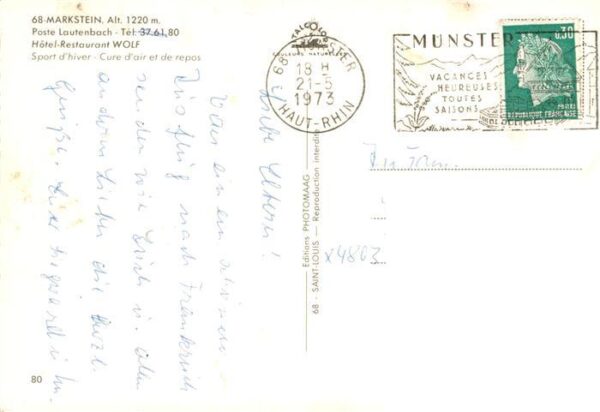 68-MARKSTEIN, Alt. 1220 m.
Poste Lautenbach - Tél. 37.61.80
Hôtel-Restaurant WOLF
Sport d'hiver - Cure d'air et de repos
Liebe Eltern!
Von einem schönen
Ausflug nach Frankreich
senden wir Euch u. allen
anderen Lieben die herzl.
Grüße.
80
Editions PHOTOMAAG
68 - SAINT-LOUIS — Reproduction interdite
COULEURS NATURELLES
68 MUNSTER
18 H
21-5
1973
HAUT-RHIN
MUNSTER
VACANCES
HEUREUSES
TOUTES
SAISONS
0,30
POSTES
REPUBLIQUE FRANÇAISE
x4803